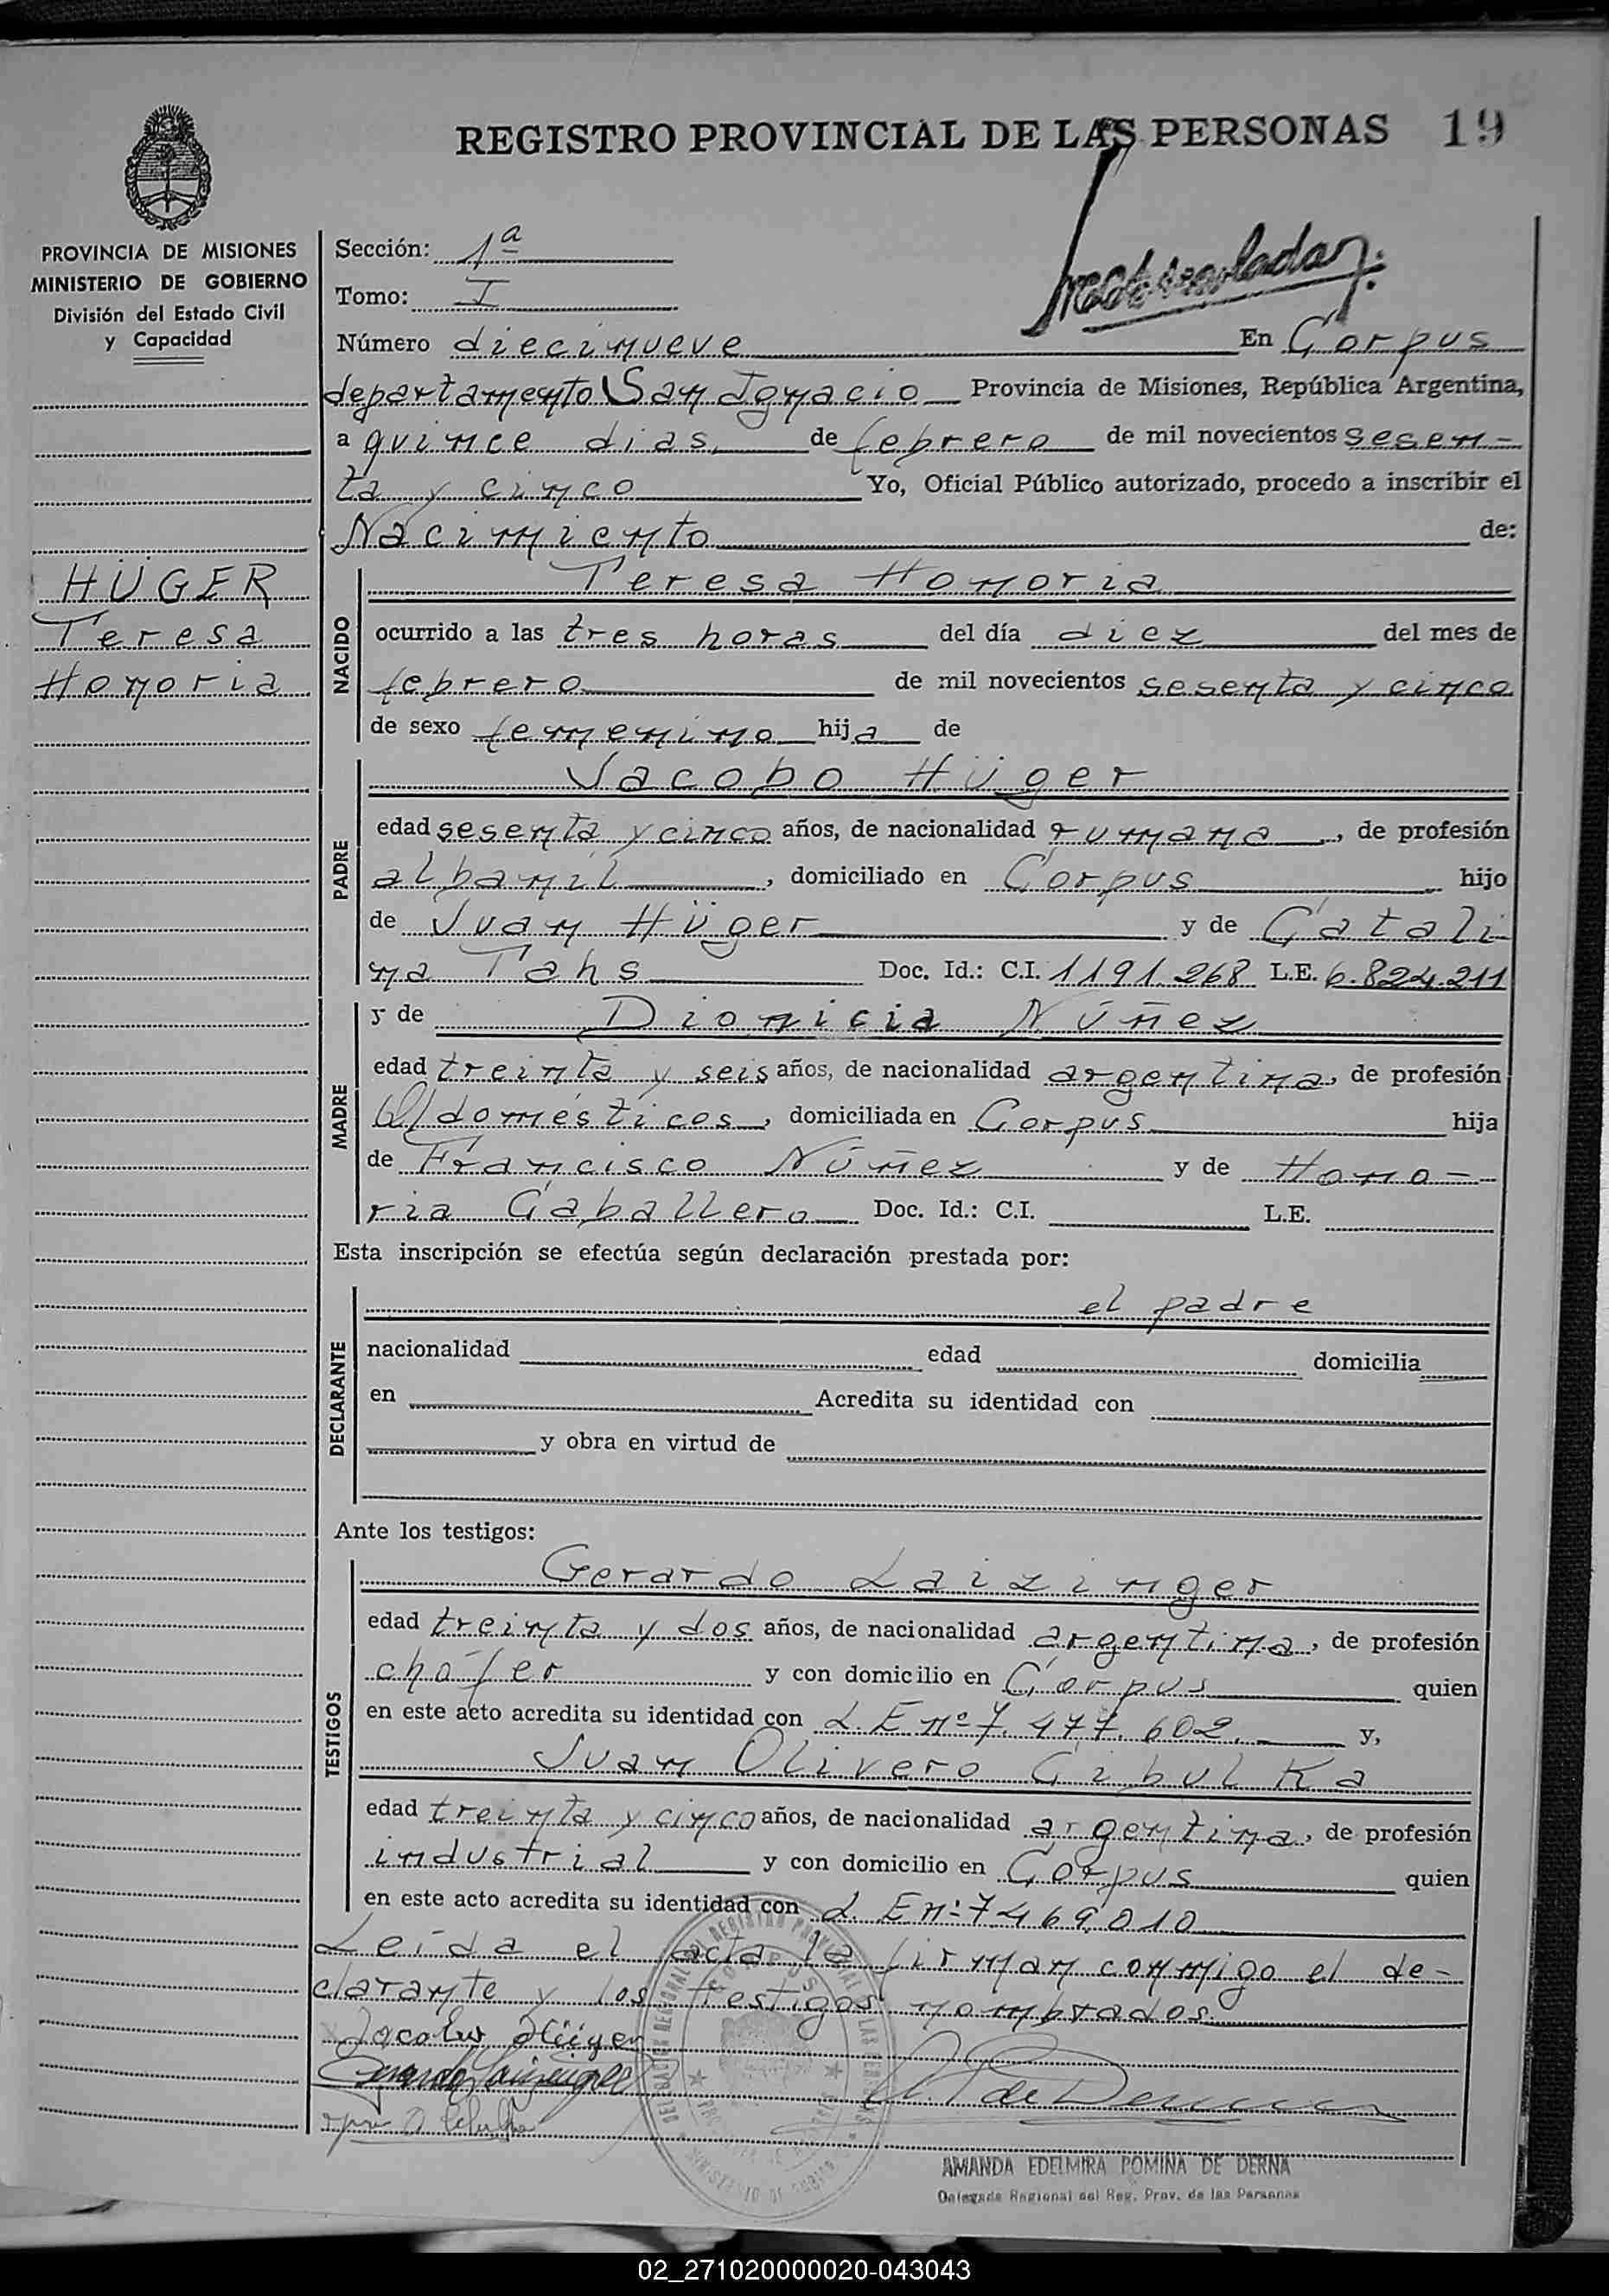 REGISTRO PROVINCIAL DE LAS PERSONAS 19
PROVINCIA DE MISIONES
MINISTERIO DE GOBIERNO
División del Estado Civil
y Capacidad
HÜGER
Teresa
Honoria
Sección: 1ª
Tomo: I
Número diecinueve En Corpus
departamento San Ignacio Provincia de Misiones, República Argentina,
a quince dias de febrero de mil novecientos sesen-
ta y cinco Yo, Oficial Público autorizado, procedo a inscribir el
Nacimiento de:
NACIDO
Teresa Honoria
ocurrido a las tres horas del día diez del mes de
febrero de mil novecientos sesenta y cinco
de sexo femenino hija de
PADRE
Jacobo Hüger
edad sesenta y cinco años, de nacionalidad rumana, de profesión
albañil, domiciliado en Corpus hijo
de Juan Hüger y de Catali
na Tahs Doc. Id.: C.I. 1191.268 L.E. 6.824.211
MADRE
y de Dionicia Núñez
edad treinta y seis años, de nacionalidad argentina, de profesión
Q/domésticos, domiciliada en Corpus hija
de Francisco Núñez y de Hono-
ria Caballero Doc. Id.: C.I. L.E.
Esta inscripción se efectúa según declaración prestada por:
DECLARANTE
el padre
nacionalidad edad domicilia
en Acredita su identidad con
y obra en virtud de
Ante los testigos:
TESTIGOS
Gerardo Laizinger
edad treinta y dos años, de nacionalidad argentina, de profesión
chófer y con domicilio en Corpus quien
en este acto acredita su identidad con L.E nº 7.477.602. y,
Juan Olivero Cibulka
edad treinta y cinco años, de nacionalidad argentina, de profesión
industrial y con domicilio en Corpus quien
en este acto acredita su identidad con L. E nº 7469010
Leída el acta la firman conmigo el de-
clarante y los testigos nombrados.
AMANDA EDELMIRA POMINA DE DERNA
Delegada Regional del Reg. Prov. de las Personas
02_271020000020-043043